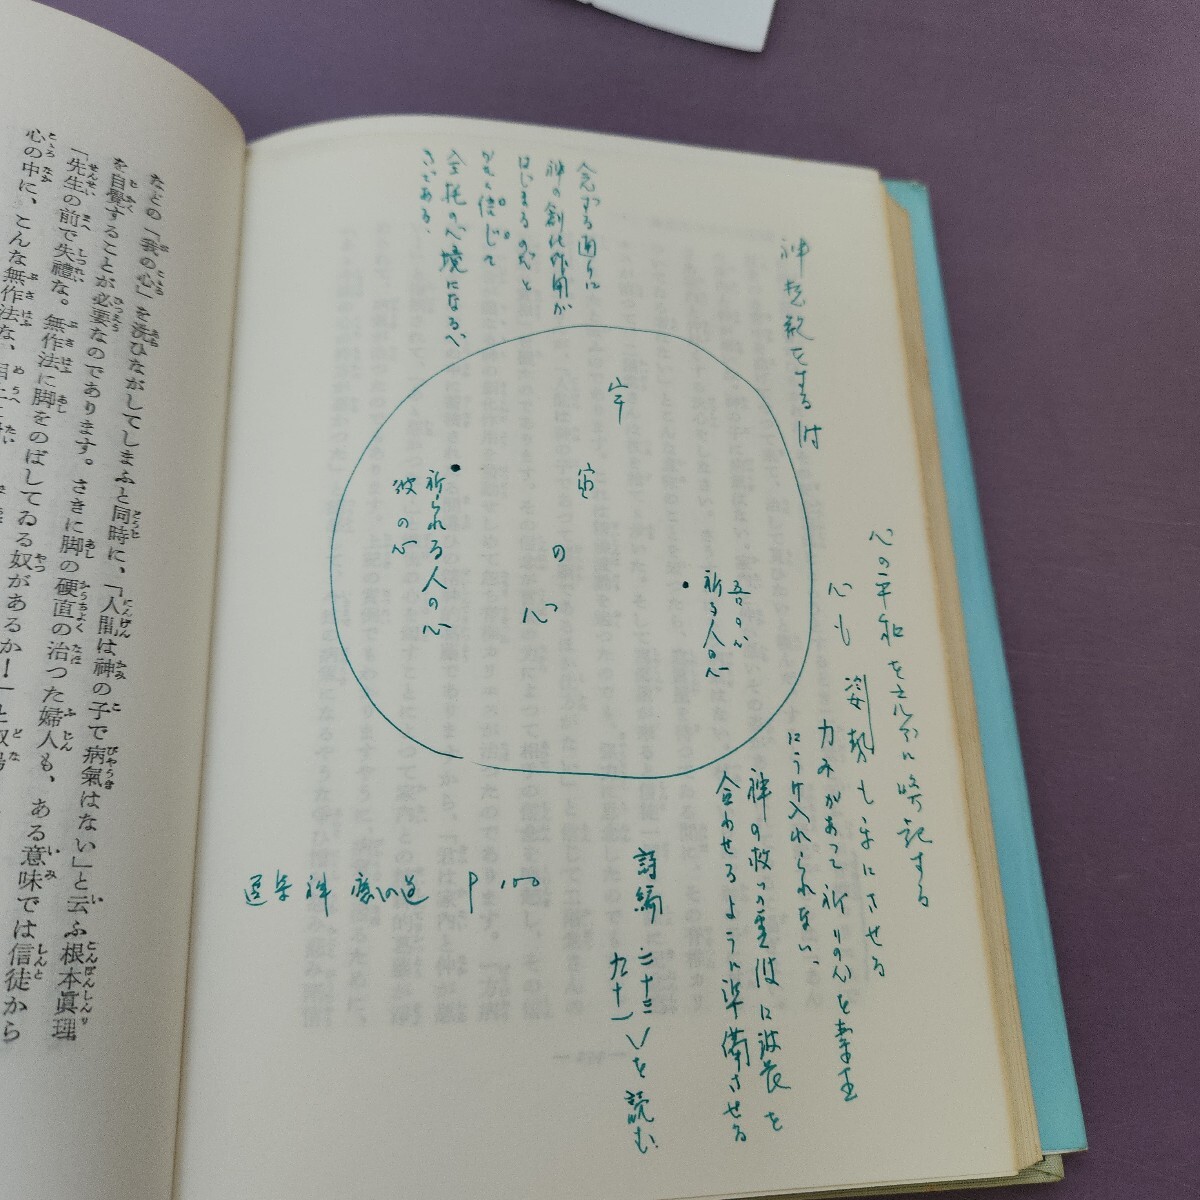 神想観をする時
心の平和を完全に暗記する
心も姿勢も平にさせる
力みがあって祈りの心を業主
にうけ入れられない、
神の救の霊波に波長を
合わせるように準備させる
詩編 二十三 を読む
九十一
宇宙の心
吾の心
祈る人の心
祈られる人の心
彼の心
念ずる通りに
神の創化作用が
はじまるのだと
かたく信じて
全托の心境になるべ
きである、
神癒への道 P100
などの「我の心」を洗ひながしてしまふと同時に、「人間は神の子で病氣はない」と云ふ根本眞理
を自覺することが必要なのであります。さきに脚の硬直の治つた婦人も、ある意味では信徒から
「先生の前で失禮な。無作法に脚をのばしてゐる奴があるか！」と
心の中に、こんな無作法な、